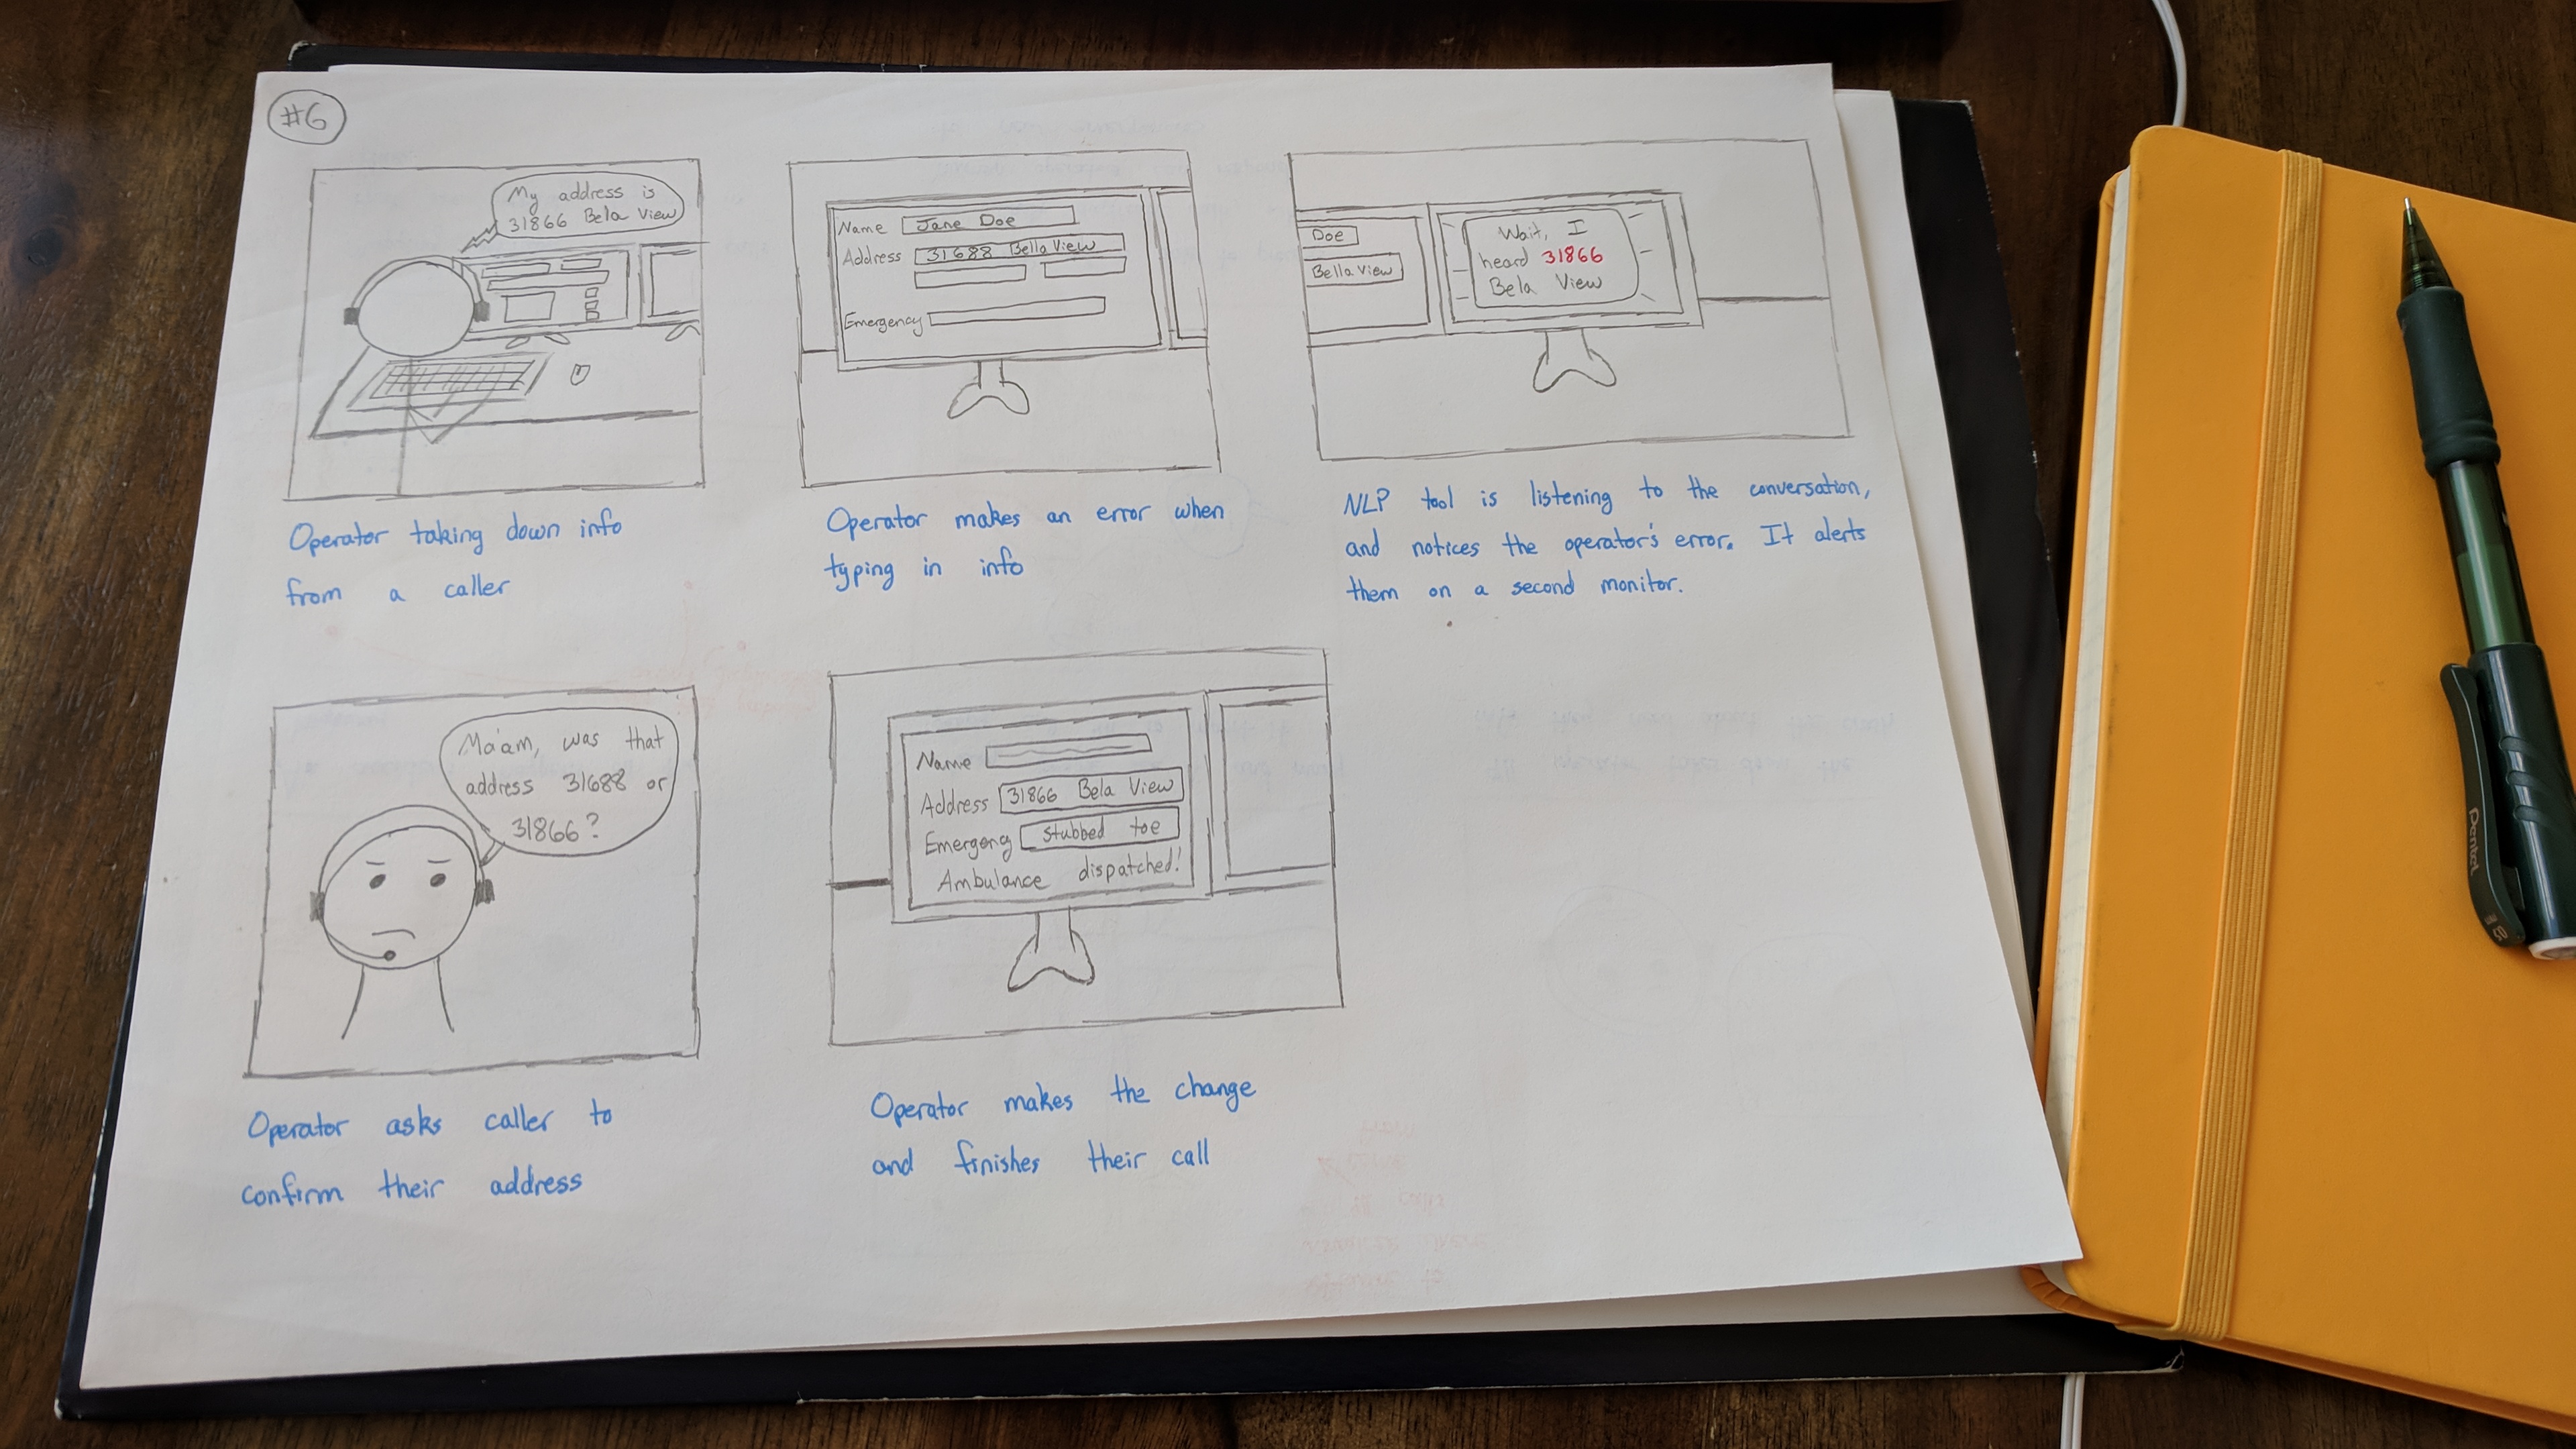 #6
My address is
31866 Bela View
Operator taking down info
from a caller
Name Jane Doe
Address 31688 Bella View
Emergency
Operator makes an error when
typing in info
Doe
Bella View
Wait, I
heard 31866
Bela View
NLP tool is listening to the conversation,
and notices the operator's error. It alerts
them on a second monitor.
Ma'am, was that
address 31688 or
31866?
Operator asks caller to
confirm their address
Name
Address 31866 Bela View
Emergency stubbed toe
Ambulance dispatched!
Operator makes the change
and finishes their call
Pentel